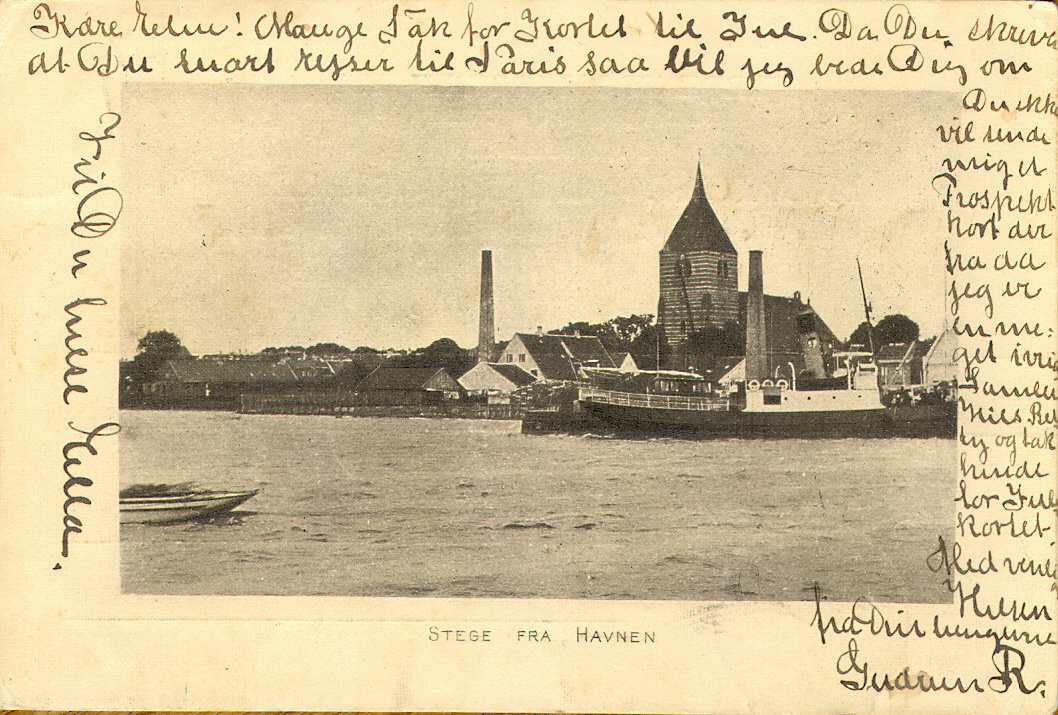 Kære Helm! Mange Tak for Kortet til Jul. Da Du skrev
at Du snart rejser til Paris saa Vil jeg bede Dig om
Du ikke
vil sende
mig et
Prospekt
kort der
fra da
jeg er
en me:
get ivri
Samler
Hils
og tak
hende
for Jule
Kortet
Med venlig
Hilsen
fra Din hengivne
Gudrun R.
Vil Du hilse Ella.
STEGE FRA HAVNEN